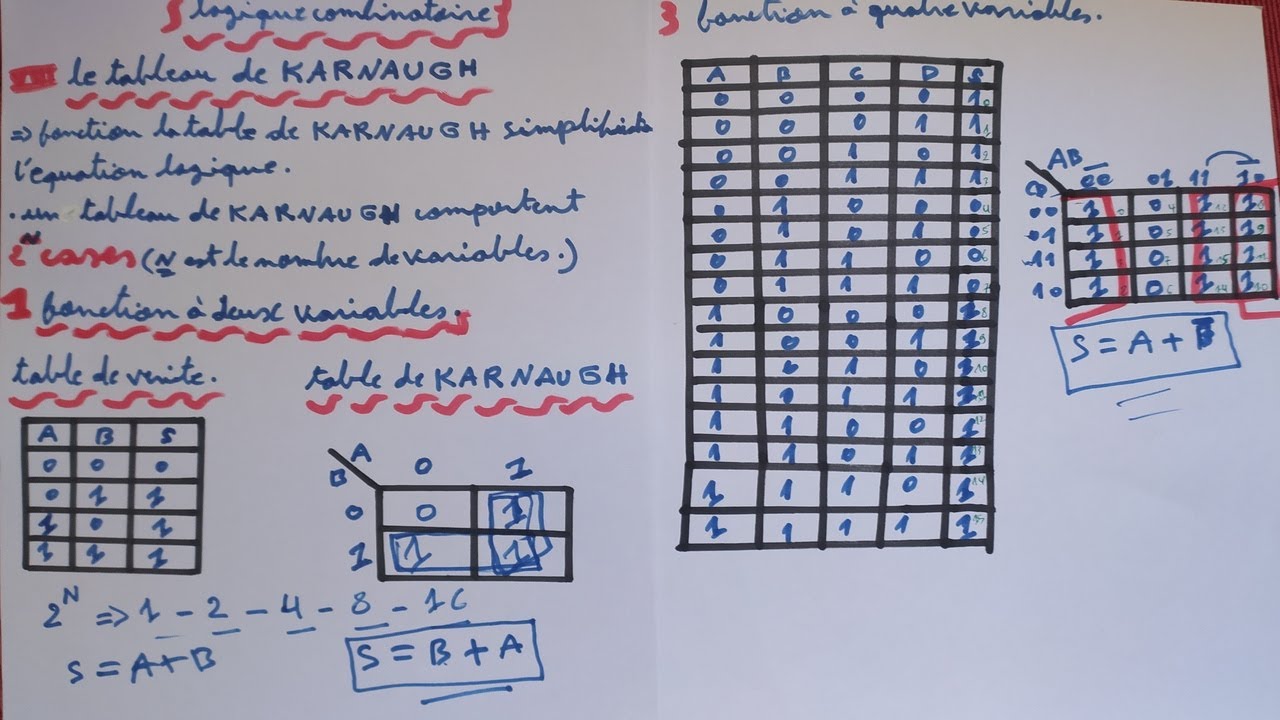 logique combinatoire
III le tableau de KARNAUGH
=> fonction la table de KARNAUGH
l'équation logique.
. un tableau de KARNAUGH comportent
2^N cases (N est le nombre de variables.)
1 fonction à deux variables.
table de verite.
A B S
0 0 0
0 1 1
1 0 1
1 1 1
2^N => 1 - 2 - 4 - 8 - 16
S = A + B
table de KARNAUGH
A
B 0 1
0 0 1
1 1 1
S = B + A
3 fonction à quatre variables.
A B C D S
0 0 0 0 1 0
0 0 0 1 1 1
0 0 1 0 1 2
0 0 1 1 1 3
0 1 0 0 0 4
0 1 0 1 0 5
0 1 1 0 0 6
0 1 1 1 0 7
1 0 0 0 1 8
1 0 0 1 1 9
1 0 1 0 1 10
1 0 1 1 1 11
1 1 0 0 1 12
1 1 0 1 1 13
1 1 1 0 1 14
1 1 1 1 1 15
AB
CD 00 01 11 10
00 1 0 4 1 12 1 8
01 1 0 5 1 13 1 9
11 1 0 7 1 15 1 11
10 1 2 0 6 1 14 1 10
S = A + B̅